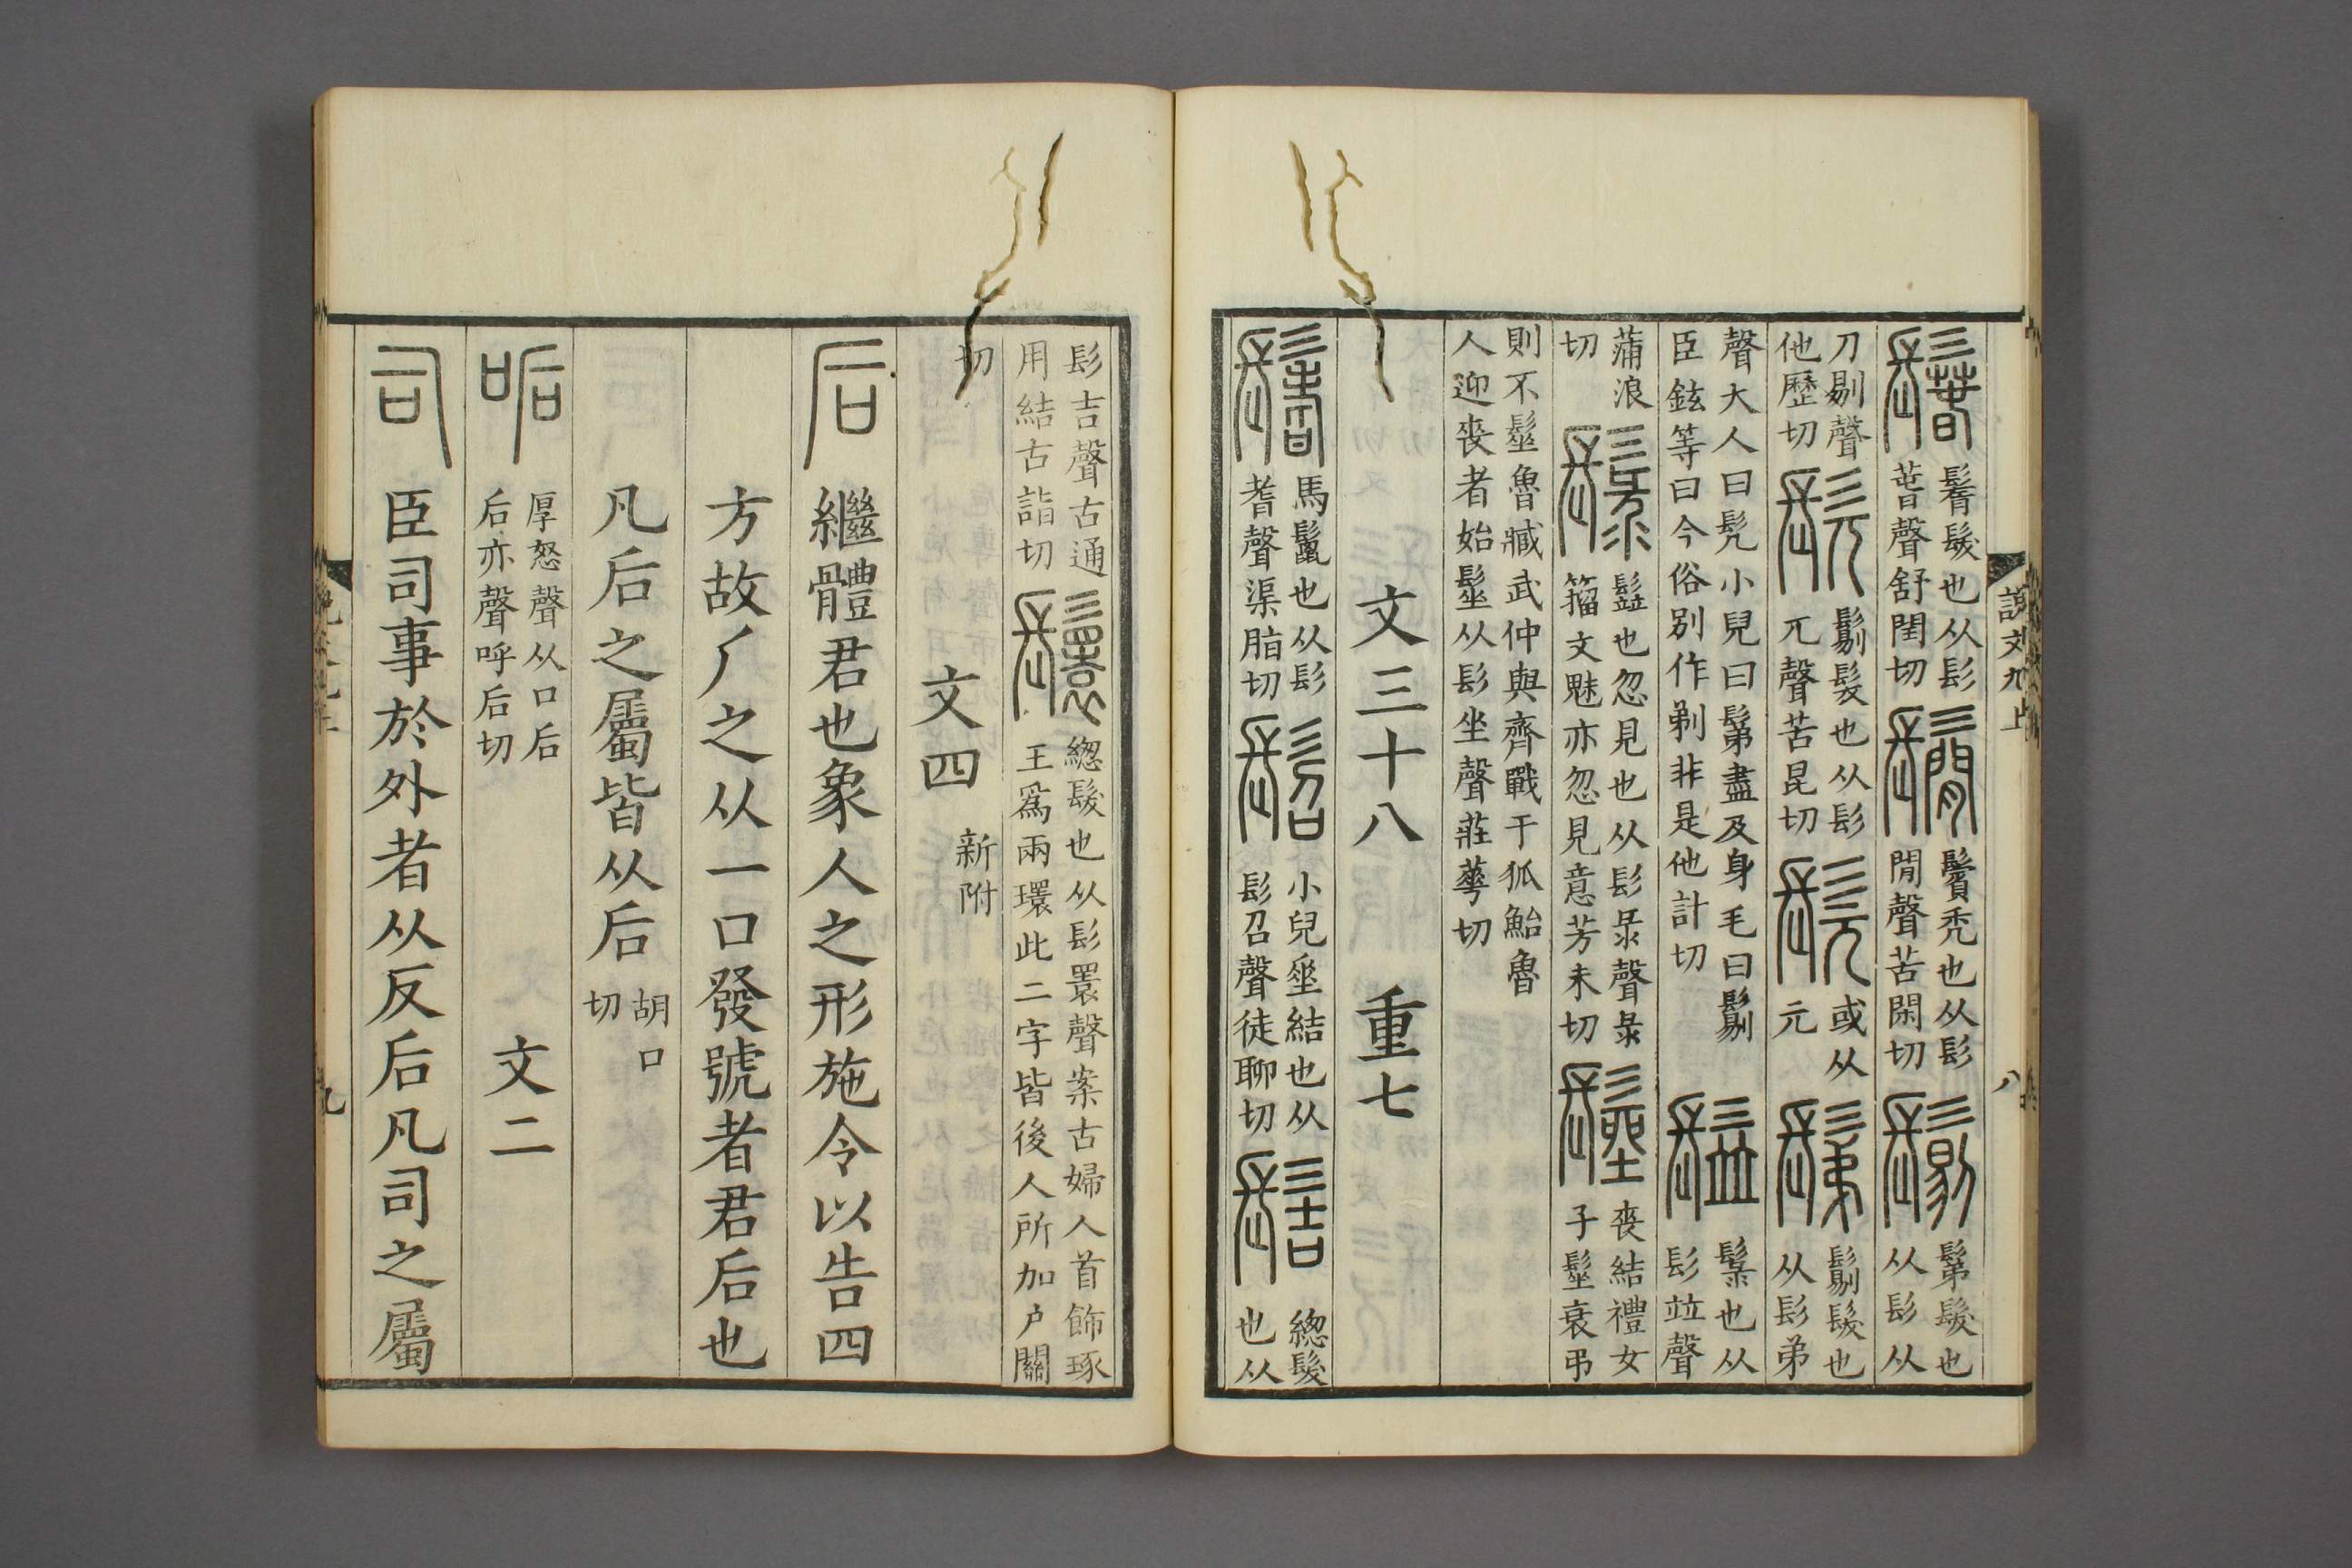 鬊鬌髮也从髟萅聲舒閏切鬜鬢禿也从髟閒聲苦閑切䰂鬀髮也从髟从
刀剔聲他歷切髡䰂髮也从髟兀聲苦昆切髨或从元鬀䰂髮也从髟弟
聲大人曰髡小兒曰鬀盡及身毛曰䰂臣鉉等曰今俗別作剃非是他計切䰃也从髟竝聲
蒲浪切䰃也忽見也从髟彔聲彔籀文魅亦忽見意芳未切髽喪結禮女子髽衰弔
則不髽魯臧武仲與齊戰于狐鮐魯人迎喪者始髽从髟坐聲莊華切
文三十八 重七
鬐馬鬣也从髟耆聲渠脂切髫小兒垂結也从髟召聲徒聊切髻總髮也从
說文九上 八
髟吉聲古通用結古詣切鬟總髮也从髟睘聲案古婦人首飾琢玉爲兩環此二字皆後人所加戶關
切
文四 新附
后 繼體君也象人之形施令以告四
方故𠂆之从一口發號者君后也
凡后之屬皆从后 胡口切
㖃 厚怒聲从口后后亦聲呼后切 文二
司 臣司事於外者从反后凡司之屬
九